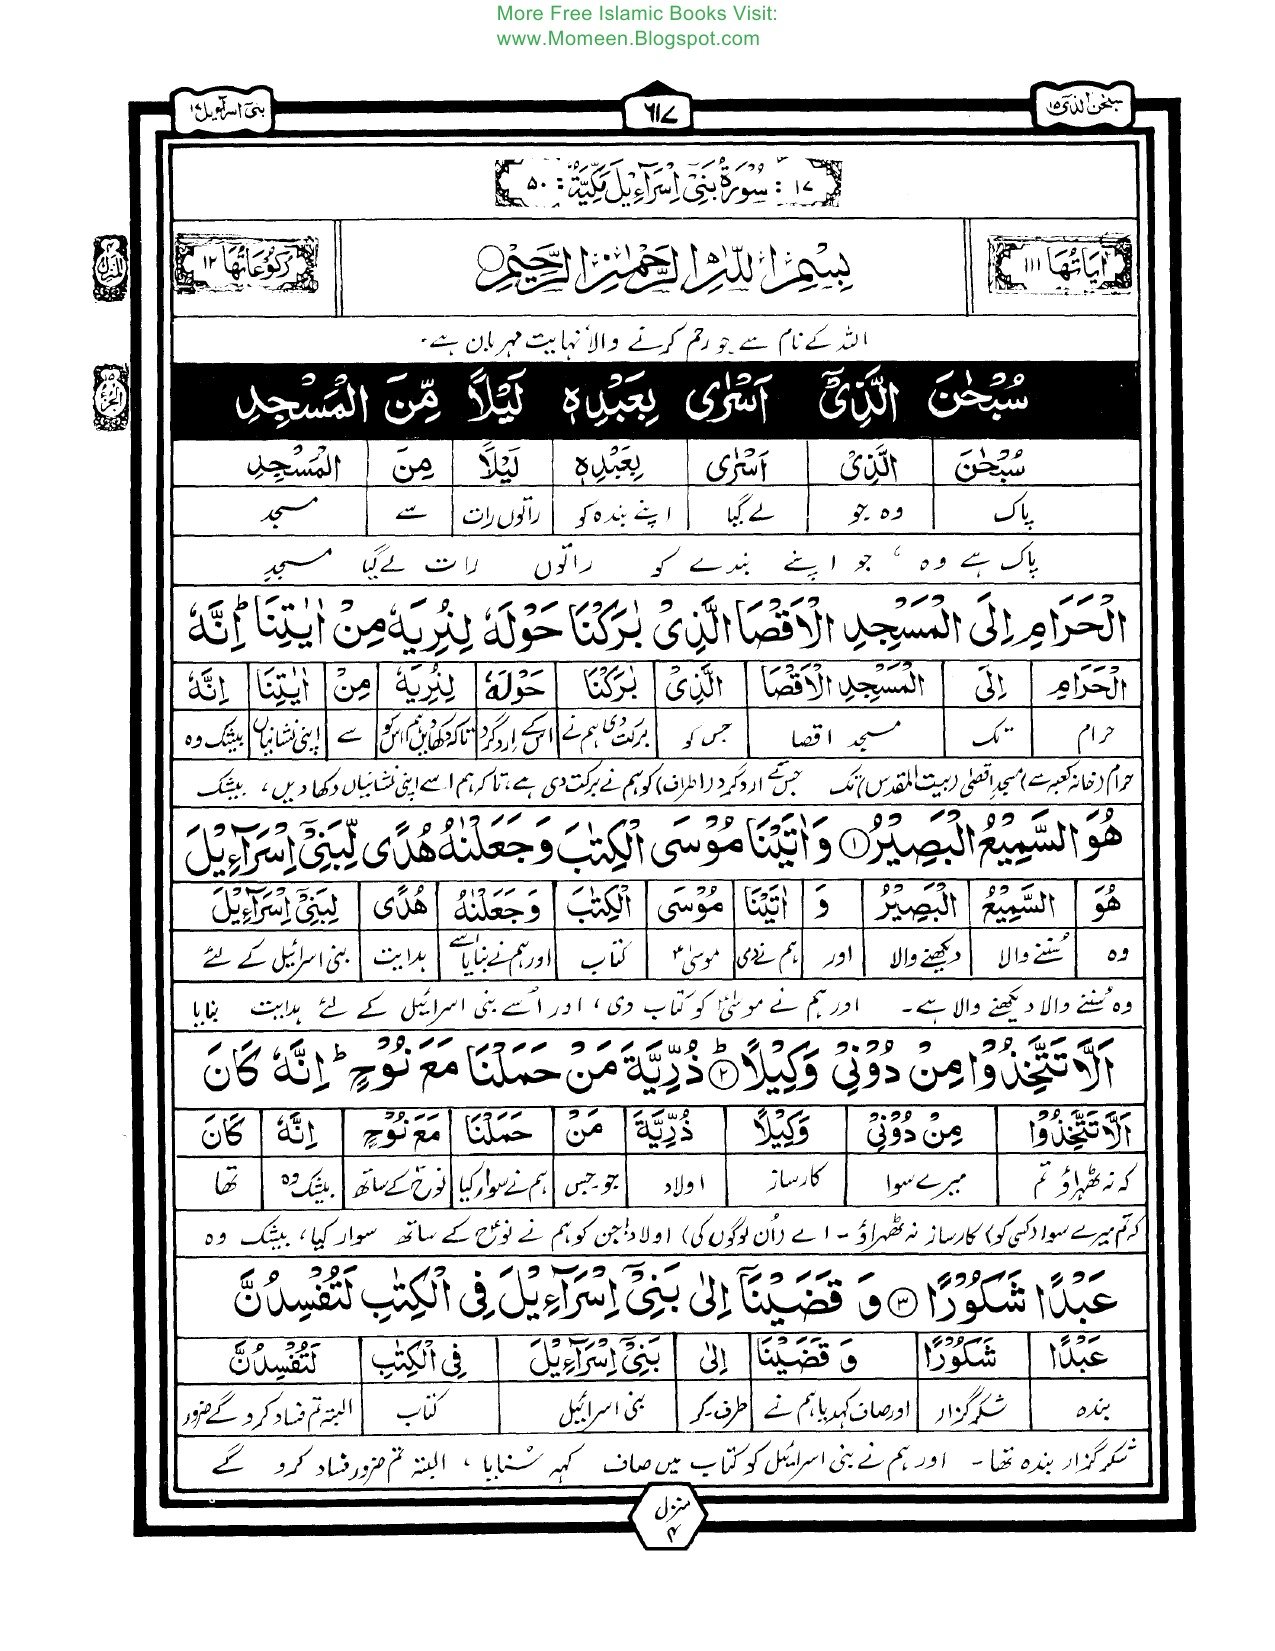 More Free Islamic Books Visit:
www.Momeen.Blogspot.com
سبحٰن الذی ۱۵
۶۱۷
بنی اسرآءیل ۱۷
۱۷ : سُوْرَةُ بَنِیْٓ اِسْرَآءِیْلَ مَكِّیَّةٌ : ۵۰
اٰیَاتُهَا ۱۱۱
بِسْمِ اللّٰهِ الرَّحْمٰنِ الرَّحِیْمِ
رُكُوْعَاتُهَا ۱۲
اللہ کے نام سے جو رحم کرنے والا نہایت مہربان ہے۔
سُبْحٰنَ الَّذِیْٓ اَسْرٰی بِعَبْدِهٖ لَیْلًا مِّنَ الْمَسْجِدِ
سُبْحٰنَ الَّذِیْٓ اَسْرٰی بِعَبْدِهٖ لَیْلًا مِنَ الْمَسْجِدِ
پاک وہ جو لے گیا اپنے بندہ کو راتوں رات سے مسجد
پاک ہے وہ، جو اپنے بندے کو راتوں رات لے گیا مسجدِ
الْحَرَامِ اِلَی الْمَسْجِدِ الْاَقْصَا الَّذِیْ بٰرَكْنَا حَوْلَهٗ لِنُرِیَهٗ مِنْ اٰیٰتِنَا ؕ اِنَّهٗ
الْحَرَامِ اِلَی الْمَسْجِدِ الْاَقْصَا الَّذِیْ بٰرَكْنَا حَوْلَهٗ لِنُرِیَهٗ مِنْ اٰیٰتِنَا اِنَّهٗ
حرام تک مسجد اقصا جس کو برکت دی ہم نے اس کے ارد گرد تاکہ دکھا دیں ہم اس کو سے اپنی نشانیاں بیشک وہ
حرام (خانہ کعبہ سے) مسجدِ اقصٰی (بیت المقدس) تک جس کے ارد گرد (اطراف) کو ہم نے برکت دی ہے، تاکہ ہم اسے اپنی نشانیاں دکھا دیں، بیشک
هُوَ السَّمِیْعُ الْبَصِیْرُ ۱ وَ اٰتَیْنَا مُوْسَی الْكِتٰبَ وَ جَعَلْنٰهُ هُدًی لِّبَنِیْٓ اِسْرَآءِیْلَ
هُوَ السَّمِیْعُ الْبَصِیْرُ وَ اٰتَیْنَا مُوْسَی الْكِتٰبَ وَ جَعَلْنٰهُ هُدًی لِبَنِیْٓ اِسْرَآءِیْلَ
وہ سُننے والا دیکھنے والا اور ہم نے دی موسیٰؑ کتاب اور ہم نے بنایا اسے ہدایت بنی اسرائیل کے لئے
وہ سُننے والا دیکھنے والا ہے۔ اور ہم نے موسیٰؑ کو کتاب دی، اور اُسے بنی اسرائیل کے لئے ہدایت بنایا
اَلَّا تَتَّخِذُوْا مِنْ دُوْنِیْ وَكِیْلًا ؕ ۲ ذُرِّیَّةَ مَنْ حَمَلْنَا مَعَ نُوْحٍ ؕ اِنَّهٗ كَانَ
اَلَّا تَتَّخِذُوْا مِنْ دُوْنِیْ وَكِیْلًا ذُرِّیَّةَ مَنْ حَمَلْنَا مَعَ نُوْحٍ اِنَّهٗ كَانَ
کہ نہ ٹھہراؤ تم میرے سوا کارساز اولاد جو جس ہم نے سوار کیا نوحؑ کے ساتھ بیشک وہ تھا
کہ تم میرے سوا (کسی کو) کارساز نہ ٹھہراؤ۔ اے (اُن لوگوں کی) اولاد! جن کو ہم نے نوحؑ کے ساتھ سوار کیا، بیشک وہ
عَبْدًا شَكُوْرًا ۳ وَ قَضَیْنَآ اِلٰی بَنِیْٓ اِسْرَآءِیْلَ فِی الْكِتٰبِ لَتُفْسِدُنَّ
عَبْدًا شَكُوْرًا وَ قَضَیْنَآ اِلٰی بَنِیْٓ اِسْرَآءِیْلَ فِی الْكِتٰبِ لَتُفْسِدُنَّ
بندہ شکر گزار اور صاف کہہ دیا ہم نے طرف۔ کو بنی اسرائیل کتاب البتہ تم فساد کروگے ضرور
شکر گزار بندہ تھا۔ اور ہم نے بنی اسرائیل کو کتاب میں صاف کہہ سُنایا، البتہ تم ضرور فساد کرو گے
منزل ۴